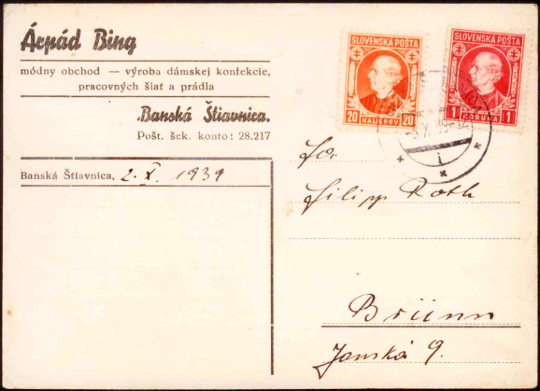 Árpád Bing
módny obchod — výroba dámskej konfekcie,
pracovných šiat a prádla
Banská Štiavnica.
Pošt. šek. konto: 28.217
Banská Štiavnica, 2. X. 1939
SLOVENSKÁ POŠTA
20 HALIEROV 20
SLOVENSKÁ POŠTA
1 KORUNA 1
Filipp Roth
Brünn
Janská 9.